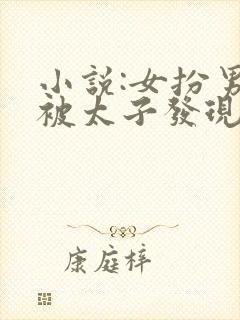 小說:女扮男
被太子發現
康庭梓